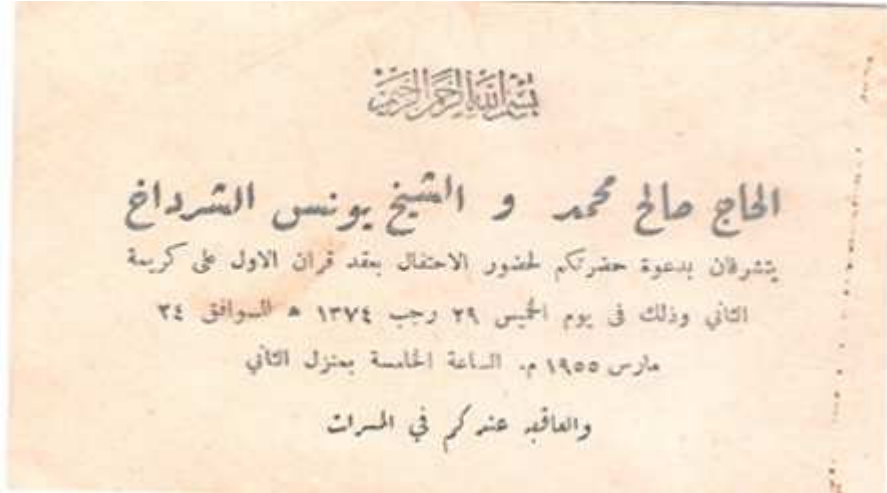 بسم الله الرحمن الرحيم
الحاج صالح محمد و الشيخ يونس الشرداخ
يتشرفان بدعوة حضرتكم لحضور الاحتفال بعقد قران الاول على كريمة
الثاني وذلك فى يوم الخميس ٢٩ رجب ١٣٧٤ ھ الموافق ٢٤
مارس ١٩٥٥ م. الساعة الخامسة بمنزل الثاني
والعاقبه عندكم في المسرات